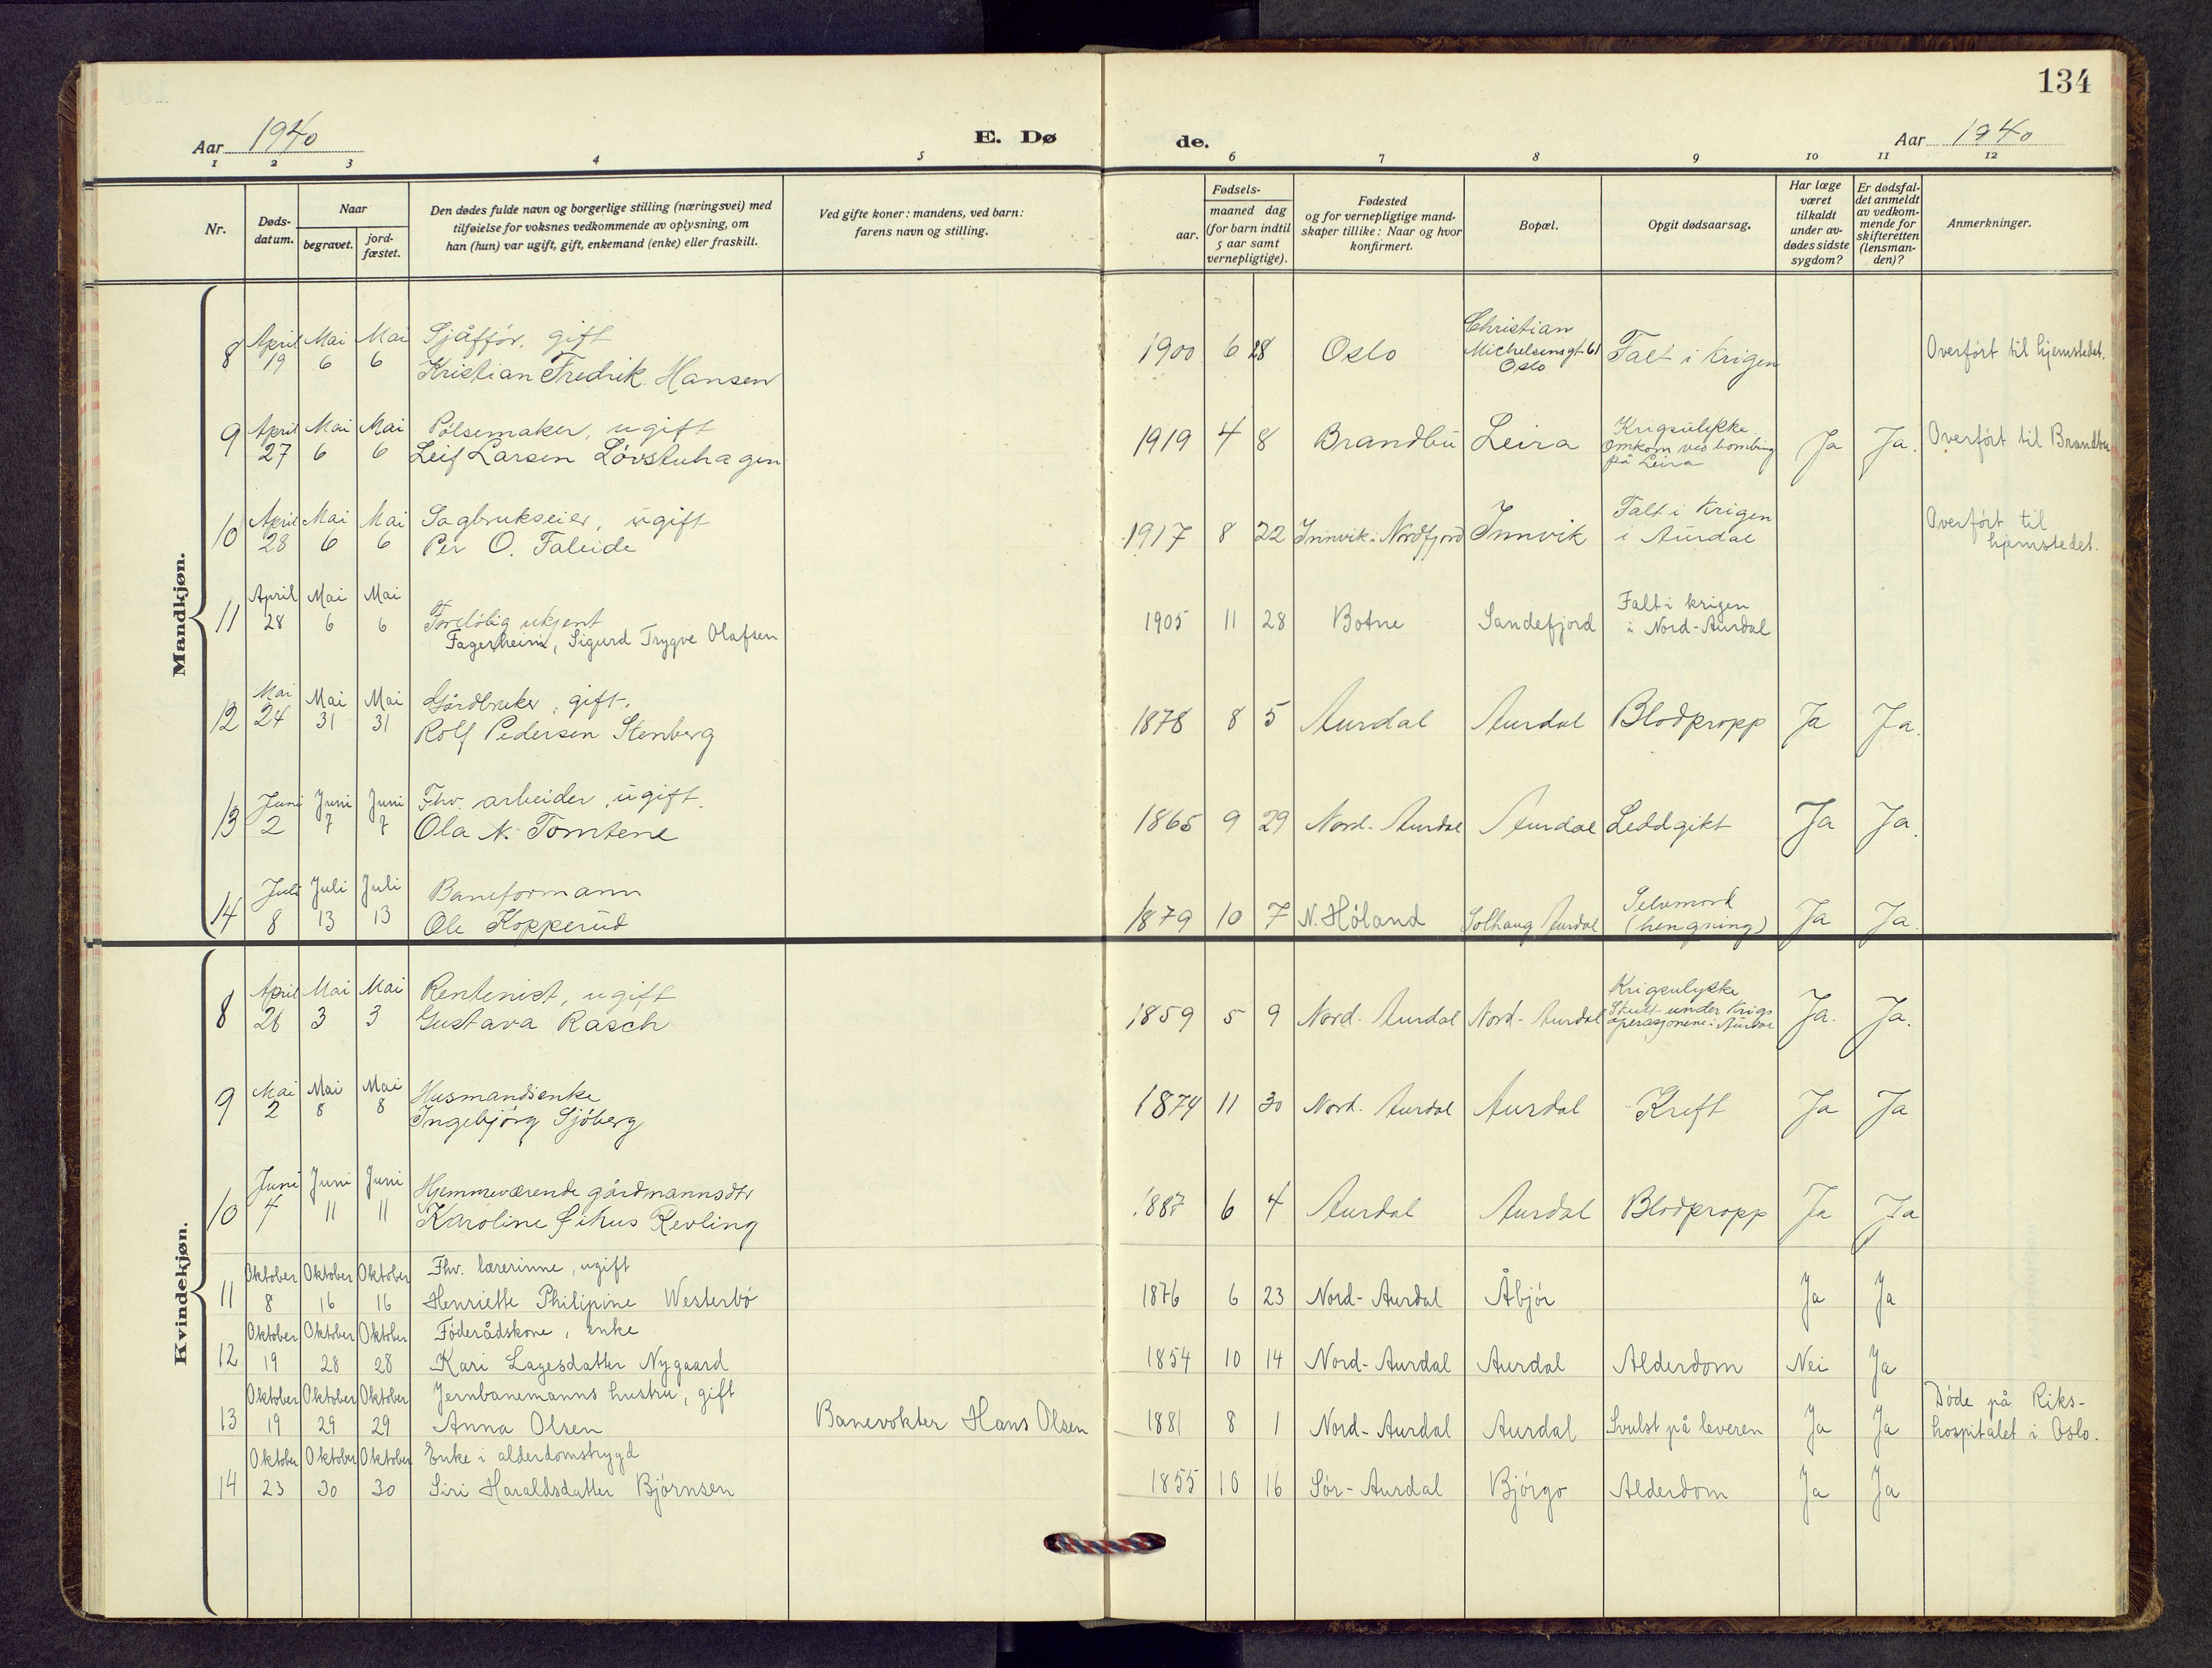 134
Aar 1940 E. Dø de. Aar 1940
1 2 3 4 5 6 7 8 9 10 11 12
Nr.
Døds-
datum.
Naar
begravet.
jord-
fæstet.
Den dødes fulde navn og borgerlige stilling (næringsvei) med
tilføielse for voksnes vedkommende av oplysning, om
han (hun) var ugift, gift, enkemand (enke) eller fraskilt.
Ved gifte koner: mandens, ved barn:
farens navn og stilling.
Fødsels-
aar.
maaned dag
(for barn indtil
5 aar samt
vernepligtige).
Fødested
og for vernepligtige mand-
skaper tillike: Naar og hvor
konfirmert.
Bopæl.
Opgit dødsaarsag.
Har læge
været
tilkaldt
under av-
dødes sidste
sygdom?
Er dødsfal-
det anmeldt
av vedkom-
mende for
skifteretten
(lensman-
den)?
Anmerkninger.
Mandkjøn.
8 April 19 Mai 6 Mai 6 Sjåffør, gift
Kristian Fredrik Hansen 1900 6 28 Oslo Christian
Michelsensgt 61
Oslo Falt i Krigen Overført til hjemstedet.
9 April 27 Mai 6 Mai 6 Pølsemaker, ugift
Leif Larsen Løvstuhagen 1919 4 8 Brandbu Leira Krigsulykke.
Omkom ved bombing
på Leira Ja Ja. Overført til Brandbu
10 April 28 Mai 6 Mai 6 Sagbrukseier, ugift
Per O. Faleide 1917 8 22 Innvik i Nordfjord Innvik Falt i Krigen
i Aurdal Overført til
hjemstedet.
11 April 28 Mai 6 Mai 6 Foreløbig ukjent
Fagerheim, Sigurd Trygve Olafsen 1905 11 28 Botne Sandefjord Falt i krigen
i Nord-Aurdal
12 Mai 24 Mai 31 Mai 31 Gårdbruker, gift.
Rolf Pedersen Stenberg 1878 8 5 Aurdal Aurdal Blodpropp Ja Ja.
13 Juni 2 Juni 7 Juni 7 Fhv. arbeider, ugift.
Ola N. Tomtene 1865 9 29 Nord-Aurdal Aurdal Leddgikt Ja Ja.
14 Juli 8 Juli 13 Juli 13 Baneformann
Ole Kopperud 1879 10 7 N. Høland Solhaug Aurdal Selvmord
(hengning) Ja Ja.
Kvindekjøn.
8 April 26 Mai 3 Mai 3 Rentenist, ugift
Gustava Rasch 1859 5 9 Nord-Aurdal Nord-Aurdal Krigsulykke
Skutt under Krigs
operasjonene i Aurdal Ja. Ja.
9 Mai 2 Mai 8 Mai 8 Husmandsenke
Ingebjørg Sjøberg 1874 11 30 Nord. Aurdal Aurdal Kreft Ja Ja
10 Juni 4 Juni 11 Juni 11 Hjemmeværende gårdmannsdtr
Karoline Revling 1887 6 4 Aurdal Aurdal Blodpropp Ja Ja
11 Oktober 8 Oktober 16 Oktober 16 Fhv. lærerinne, ugift
Henriette Philipine Westerbø 1876 6 23 Nord-Aurdal Åbjør Ja Ja
12 Oktober 19 Oktober 28 Oktober 28 Føderådskone, enke
Kari Lagesdatter Nygaard 1854 10 14 Nord-Aurdal Aurdal Alderdom Nei Ja
13 Oktober 19 Oktober 29 Oktober 29 Jernbanemanns hustru, gift
Anna Olsen Banevokter Hans Olsen 1881 8 1 Nord-Aurdal Aurdal Svulst på leveren Ja Ja Døde på Riks-
hospitalet i Oslo.
14 Oktober 23 Oktober 30 Oktober 30 Enke i alderdomstrygd
Siri Haraldsdatter Bjørnsen 1855 10 16 Sør-Aurdal Bjørgo Alderdom Ja Ja